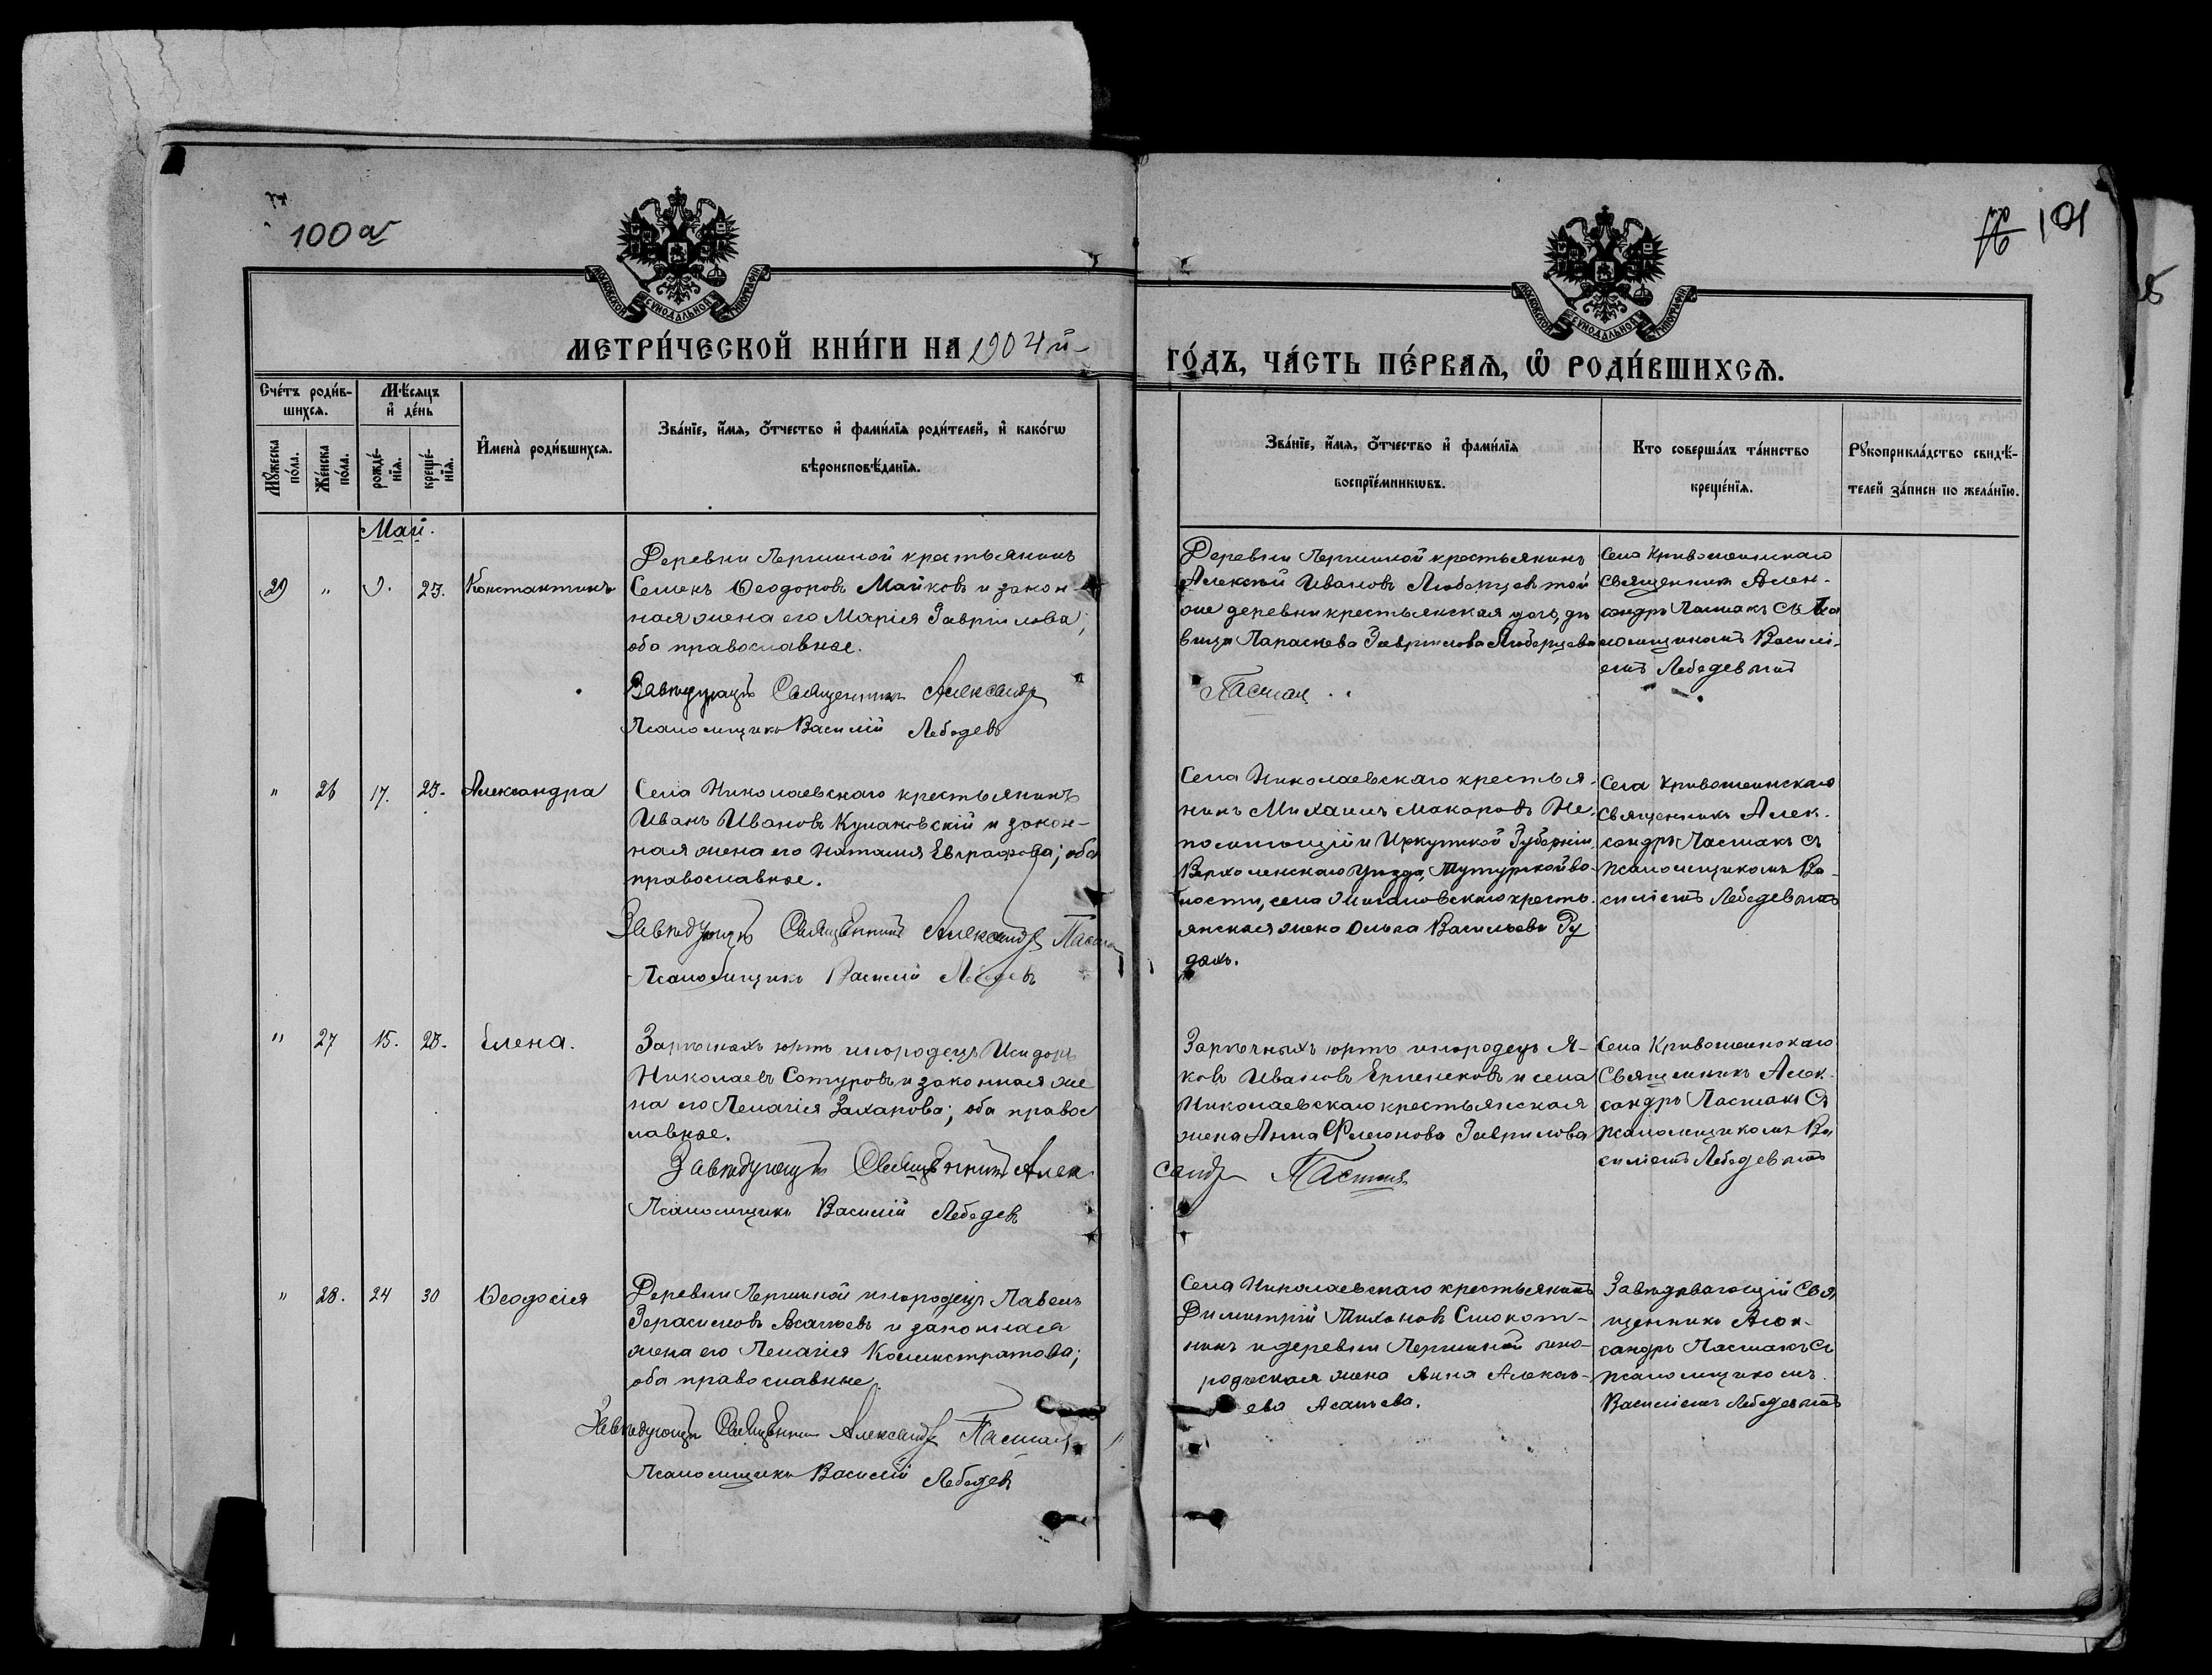 100 об
101
МОСКОВСКОЙ СѴНОДАЛЬНОЙ ТИПОГРАФІИ
МОСКОВСКОЙ СѴНОДАЛЬНОЙ ТИПОГРАФІИ
МЕТРИ́ЧЕСКОЙ КНИ́ГИ НА 1904 й
ГО́ДЪ, ЧА́СТЬ ПЕ́РВАѦ, Ѡ҆ РОДИ́ВШИХСѦ.
Сче́тъ роди́в-
шихсѧ.
Мꙋ́жеска по́ла.
Же́нска по́ла.
Мѣ́сѧцъ
и҆ де́нь
рожде́-
нїѧ.
креще́-
нїѧ.
И҆мена̀ роди́вшихсѧ.
Зва́нїе, и҆́мѧ, ѻ҆́тчество и҆ фами́лїѧ роди́телей, и҆ како́гѡ
вѣроисповѣ́данїѧ.
Зва́нїе, и҆́мѧ, ѻ҆́тчество и҆ фами́лїѧ
воспрїе́мникѡвъ.
Кто соверша́лъ та́инство
креще́нїѧ.
Рꙋкоприкла́дство свидѣ́-
телей за́писи по жела́нїю.
Май.
29 " 9. 23. Константинъ
Деревни Першиной крестьянинъ
Семенъ Ѳеодоровъ Майковъ и закон-
ная жена его Марія Гаврилова;
оба православные.
Завѣдующій Священникъ Александръ
Псаломщикъ Василій Лебедевъ
Деревни Першиной крестьянинъ
Алексѣй Ивановъ Люберцевъ той
же деревни крестьянская дочь, дѣ
вица Параскева Гаврилова Люберцева
Пасмак
Села Кривошеинскаго
Священникъ Алек-
сандръ Пасмакъ съ Пса
ломщикомъ Васили-
емъ Лебедевымъ
" 26 17. 23. Александра
Села Николаевскаго крестьянинъ
Иванъ Ивановъ Кулаковскій и закон-
ная жена его Наталія Евграфова; оба
православные.
Завѣдующій Священникъ Александръ Пасмак
Псаломщикъ Василій Лебедевъ
Села Николаевскаго крестья-
нинъ Михаилъ Макаровъ Не-
помнющій и Иркутской Губерніи
Верхоленскаго Уѣзда, Тутурской во-
лости, села кресть-
янская жена Ольга Васильева Ру
дыхъ.
Села Кривошеинскаго
Священникъ Алек-
сандръ Пасмакъ съ
Псаломщикомъ Ва-
силіемъ Лебедевымъ
" 27 15. 23. Елена.
Зарѣчныхъ юртъ инородецъ Исидоръ
Николаевъ Сотуровъ и законная же
на его Пелагія Захарова; оба правос
лавные.
Завѣдующій Священникъ Алек
Псаломщикъ Василій Лебедевъ
Зарѣчныхъ юртъ инородецъ Я-
ковъ Ивановъ Ермековъ и села
Николаевскаго крестьянская
жена Анна Флегонова Гаврилова
сандръ Пасмак
Села Кривошеинскаго
Священникъ Алек-
сандръ Пасмакъ съ
Псаломщикомъ Ва
силіемъ Лебедевымъ
" 28. 24 30 Ѳеодосія
Деревни Першиной инородецъ Павелъ
Герасимовъ Асапьевъ и законная
жена его Пелагія Каллистратова;
оба православные.
Завѣдующій Священникъ Александръ Пасмак
Псаломщикъ Василій Лебедевъ
Села Николаевскаго крестьянинъ
Димитрій Тихоновъ Смокот-
нинъ и деревни Першиной ино-
родческая жена Анна Алексѣ-
ева Асапьева.
Завѣдывающій Свя
щенникъ Алек-
сандръ Пасмакъ съ
псаломщикомъ
Василіемъ Лебедевымъ